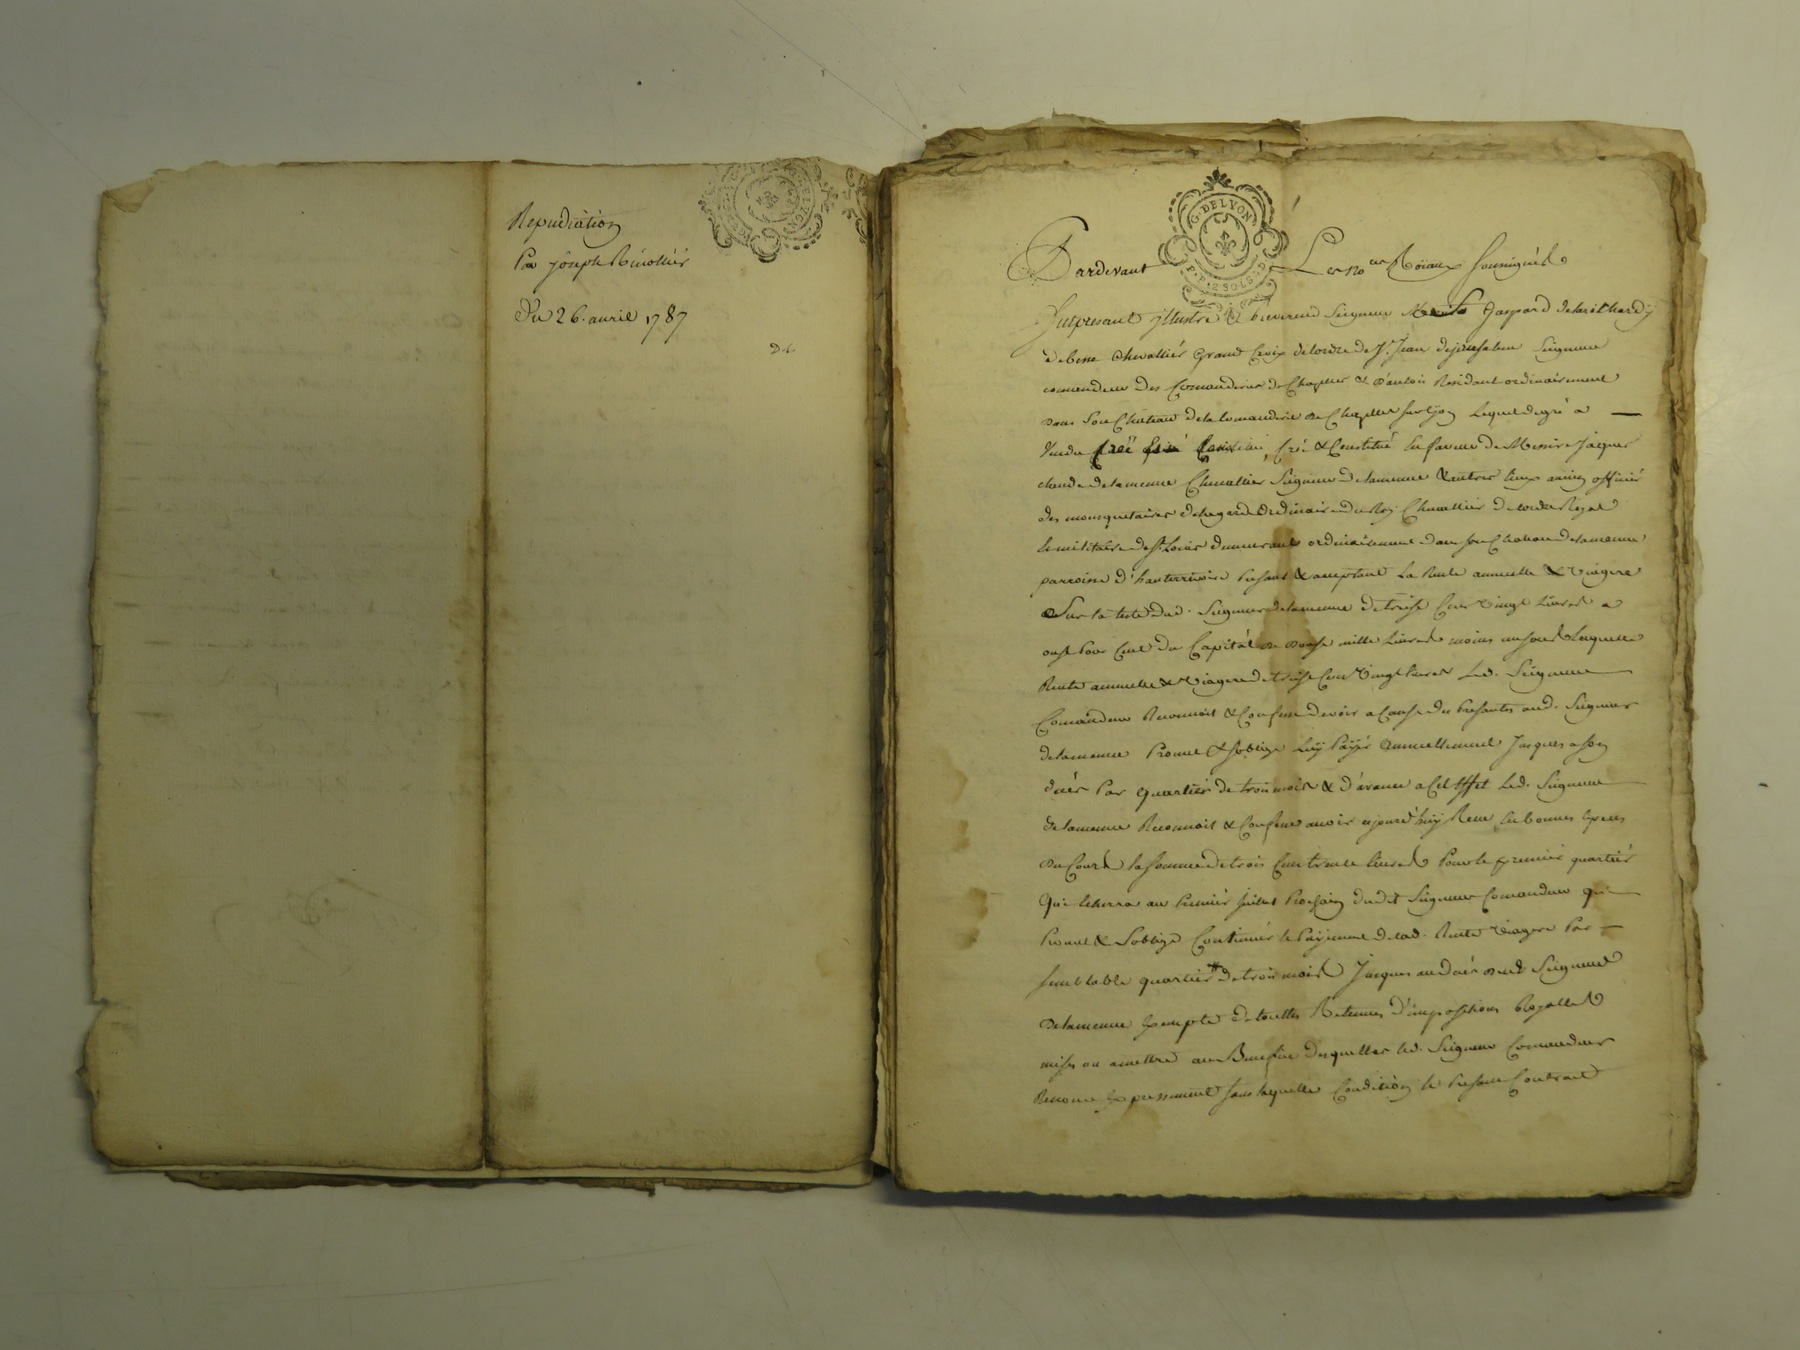 Repudiation
Par joseph
Du 26. avril 1787
G. DE LYON
P. P. 2 SOLS. D
Pardevant Les no.res Roiaux sousignés
Fut presant illustre & Reverend Seigneur Gaspard
de besse Chevallier Grand Croix de lordre de St. Jean de jerusalem Seigneur
comandeur des Comanderies de Chapelles & Residant ordinairement
dans son Chateau de la Comanderie de Chazelles sur lyon Lequel de gré a
Vendu Creé & Constitué En faveur de Messire Jacques
claude de lamenue Chevallier Seigneur de lamenue & autres lieux ancien officier
des mousquetaires de la garde ordinaire du Roy Chevallier de lordre Royal
& militaire de St. Louis demeurant ordinairement dans son Chateau de lamenue
parroisse d'hauterivoire presant & acceptant La Rente annuelle & Viagere
Sur la teste dud. Seigneur de lamenue de treise Cens vingt Livres a
onse Pour Cent du Capital de douse mille Livres moins un sou Laquelle
Rente annuelle & viagere de treise Cens vingt livres Led. Seigneur
Comandeur Reconnoit & Confesse devoir a Cause des Presantes aud. Seigneur
de lamenue Promet & s'oblige Luy Payer Annuellement Jusques a son
dués Par quartier de trois mois & d'avance a Cet Effet Led. Seigneur
de lamenue Reconnoit & Confesse avoir aujourd'huy Receu En bonnes Especes
du Cours la somme de trois Cens trente livres Pour le premier quartier
qui Echerra au Premier Juillet Prochain dudit Seigneur Comandeur qui
Promet & S'oblige Continuer le Payement de lad. Rente viagere Par
semblable quartier de trois mois Jusques au dués dud. Seigneur
de lamenue Exempte de touttes Retenues d'impositions Royalles
mises ou a mettre au Benefice desquelles led. Seigneur Comandeur
Renonce Expressement sans laquelle Condition le Presant Contrat